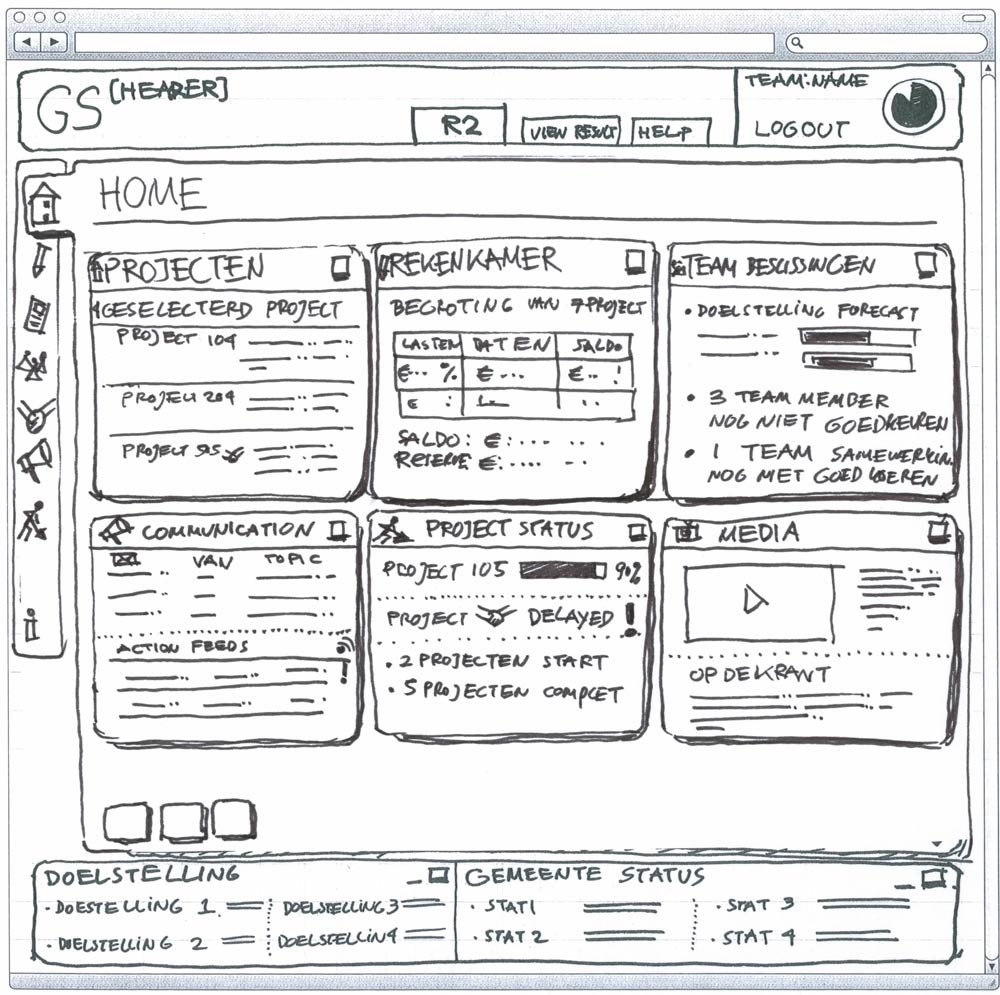 GS [HEADER]
R2
VIEW RESULT
HELP
TEAM:NAME
LOGOUT
HOME
PROJECTEN
GESELECTERD PROJECT
PROJECT 104
PROJECT 204
PROJECT 505
REKENKAMER
BEGROTING VAN 7 PROJECT
LASTEN BATEN SALDO
€... % €... €.. !
€ :
SALDO: €:.... ... ..
RESERVE €:.... ..
TEAM BESLISSINGEN
• DOELSTELLING FORECAST
• 3 TEAM MEMBER
NOG NIET GOEDKEUREN
• 1 TEAM SAMEWERKIN.
NOG NIET GOED KOEREN
COMMUNICATION
VAN TOPIC
ACTION FEEDS
!
PROJECT STATUS
PROJECT 105 90%
PROJECT DELAYED !
• 2 PROJECTEN START
• 5 PROJECTEN COMPLET
MEDIA
OP DE KRANT
i
DOELSTELLING
• DOESTELLING 1.
DOELSTELLING 3
• DOELSTELLING 2
DOELSTELLIN4
GEMEENTE STATUS
• STAT1
• STAT 3
• STAT 2
• STAT 4